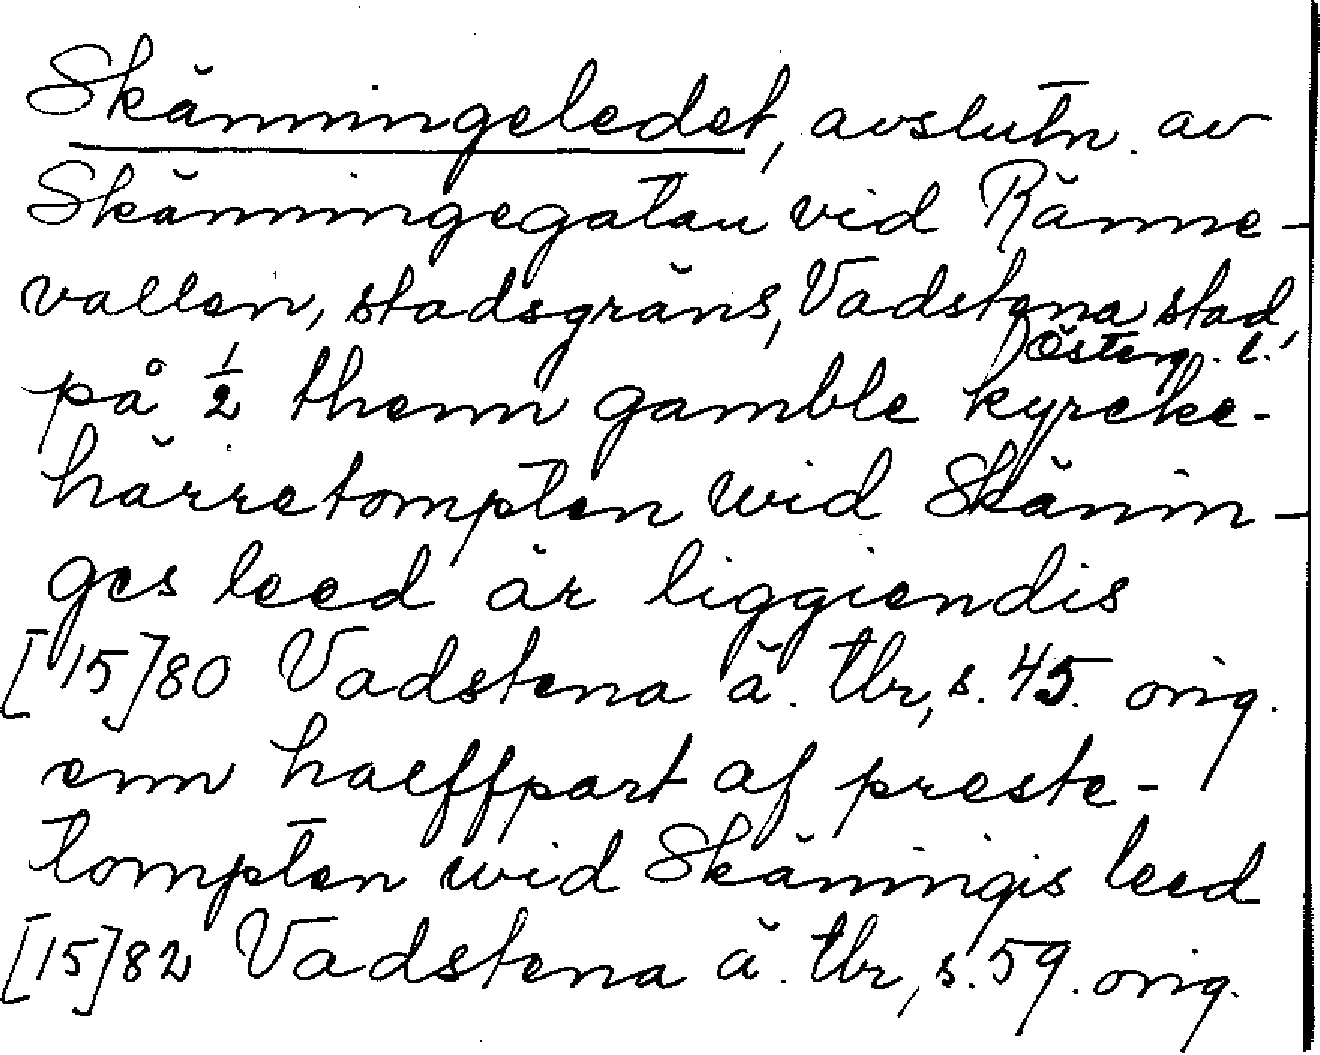 Skänningeledet, avslutn. av
Skänningegatan vid Ränne-
vallen, stadsgräns, Vadstena stad,
Österg. l.
på 1/2 thenn gamble kyrcke-
härretompten wid Skänin-
ges leed är liggiendis
[15]80 Vadstena ä. tbr, s. 45. orig.
enn haeffpart af preste-
tompten wid Skäningis leed
[15]82 Vadstena ä. tbr, s. 59. orig.